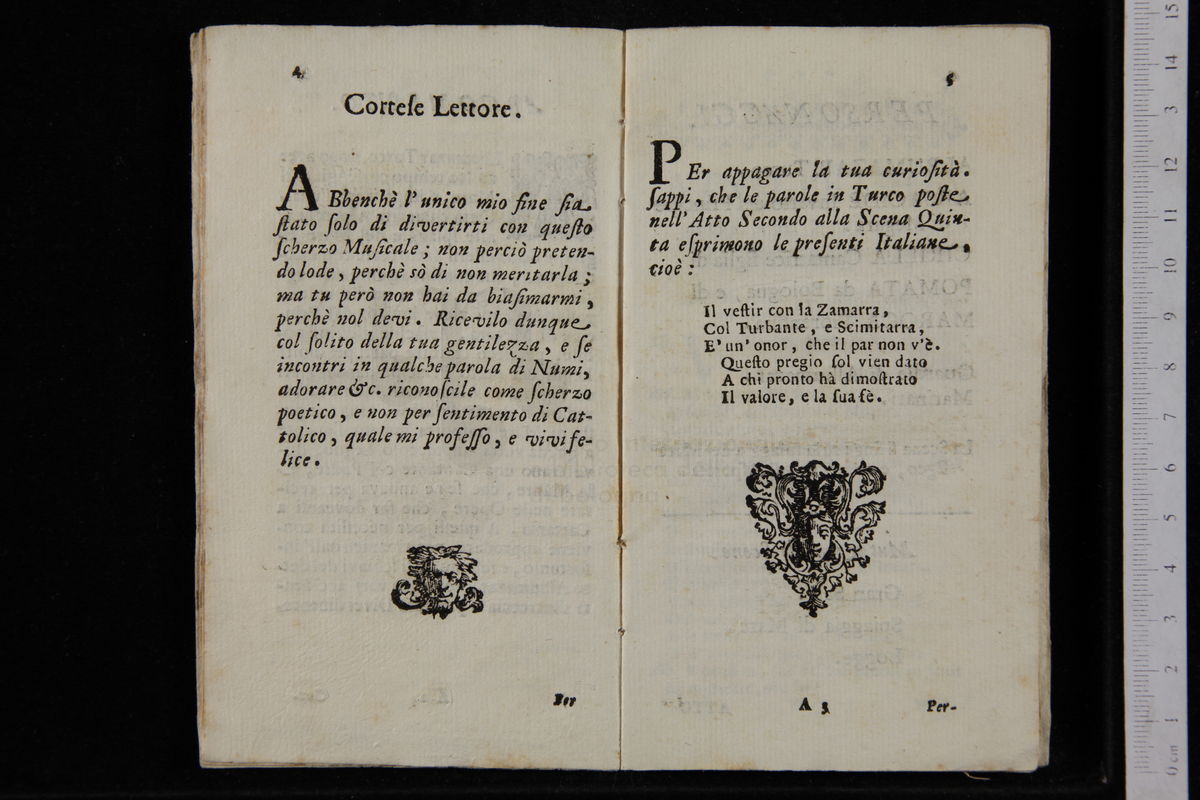 4
Cortese Lettore.
ABbenchè l'unico mio fine sia
stato solo di divertirti con questo
scherzo Musicale; non perciò preten-
do lode, perchè sò di non meritarla;
ma tu però non hai da biasimarmi,
perchè nol devi. Ricevilo dunque
col solito della tua gentilezza, e se
incontri in qualche parola di Numi,
adorare &c. riconoscile come scherzo
poetico, e non per sentimento di Cat-
tolico, quale mi professo, e vivi fe-
lice.
Per
5
PEr appagare la tua curiosità.
sappi, che le parole in Turco poste
nell'Atto Secondo alla Scena Quin-
ta esprimono le presenti Italiane,
cioè:
Il vestir con la Zamarra,
Col Turbante, e Scimitarra,
E' un' onor, che il par non v'è.
Questo pregio sol vien dato
A chi pronto hà dimostrato
Il valore, e la sua fè.
A 3
Per-
0 cm 1 2 3 4 5 6 7 8 9 10 11 12 13 14 15